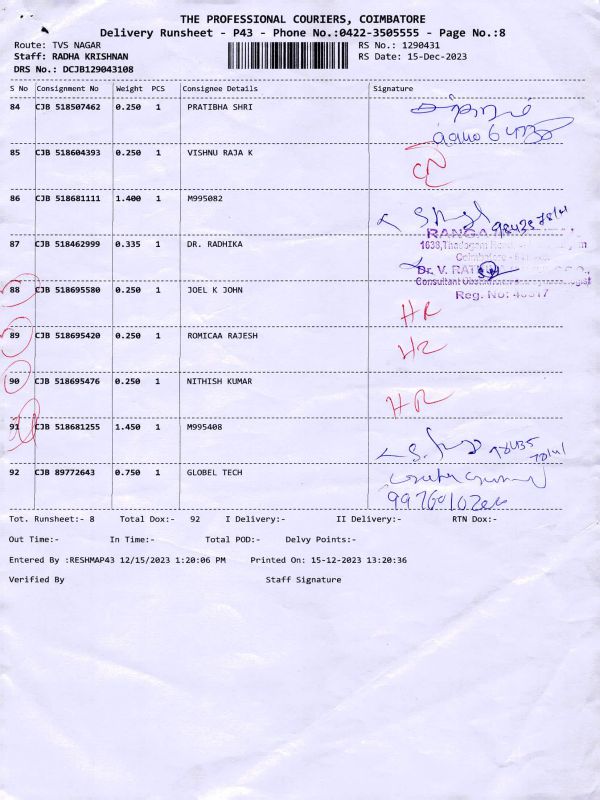 THE PROFESSIONAL COURIERS, COIMBATORE
Delivery Runsheet - P43 - Phone No.:0422-3505555 - Page No.:8
Route: TVS NAGAR RS No.: 1290431
Staff: RADHA KRISHNAN RS Date: 15-Dec-2023
DRS No.: DCJB129043108
S No Consignment No Weight PCS Consignee Details Signature
84 CJB 518507462 0.250 1 PRATIBHA SHRI
85 CJB 518604393 0.250 1 VISHNU RAJA K
86 CJB 518681111 1.400 1 M995082
RANGA
87 CJB 518462999 0.335 1 DR. RADHIKA
Coimbatore
Dr. V.
Consultant
Reg. No:
88 CJB 518695580 0.250 1 JOEL K JOHN
HR
89 CJB 518695420 0.250 1 ROMICAA RAJESH
90 CJB 518695476 0.250 1 NITHISH KUMAR
HR
91 CJB 518681255 1.450 1 M995408
92 CJB 89772643 0.750 1 GLOBEL TECH
Tot. Runsheet:- 8 Total Dox:- 92 I Delivery:- II Delivery:- RTN Dox:-
Out Time:- In Time:- Total POD:- Delvy Points:-
Entered By :RESHMAP43 12/15/2023 1:20:06 PM Printed On: 15-12-2023 13:20:36
Verified By Staff Signature